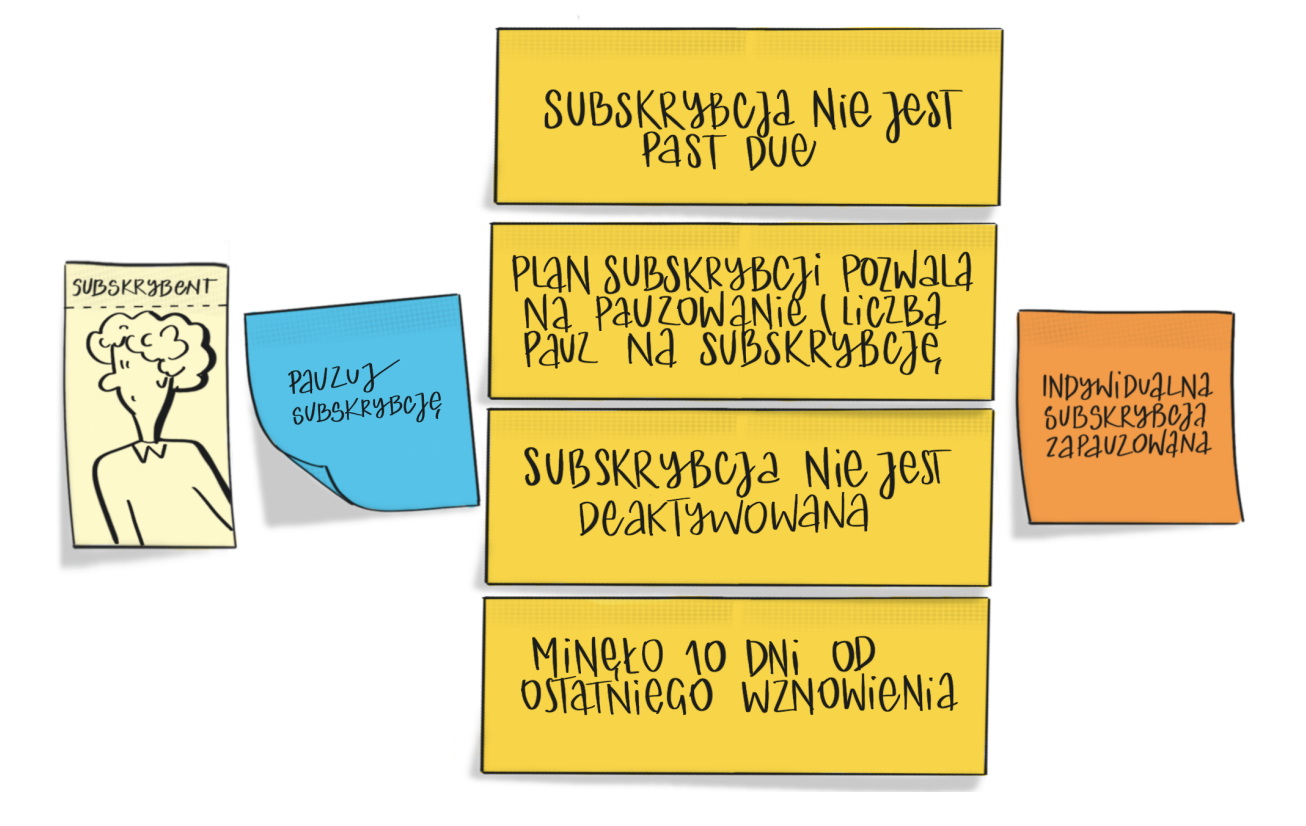 SUBSKRYBENT
PAUZUJ
SUBSKRYBCJĘ
SUBSKRYBCJA NIE JEST
PAST DUE
PLAN SUBSKRYBCJI POZWALA
NA PAUZOWANIE I LICZBA
PAUZ NA SUBSKRYBCJĘ
SUBSKRYBCJA NIE JEST
DEAKTYWOWANA
MINĘŁO 10 DNI OD
OSTATNIEGO WZNOWIENIA
INDYWIDUALNA
SUBSKRYBCJA
ZAPAUZOWANA